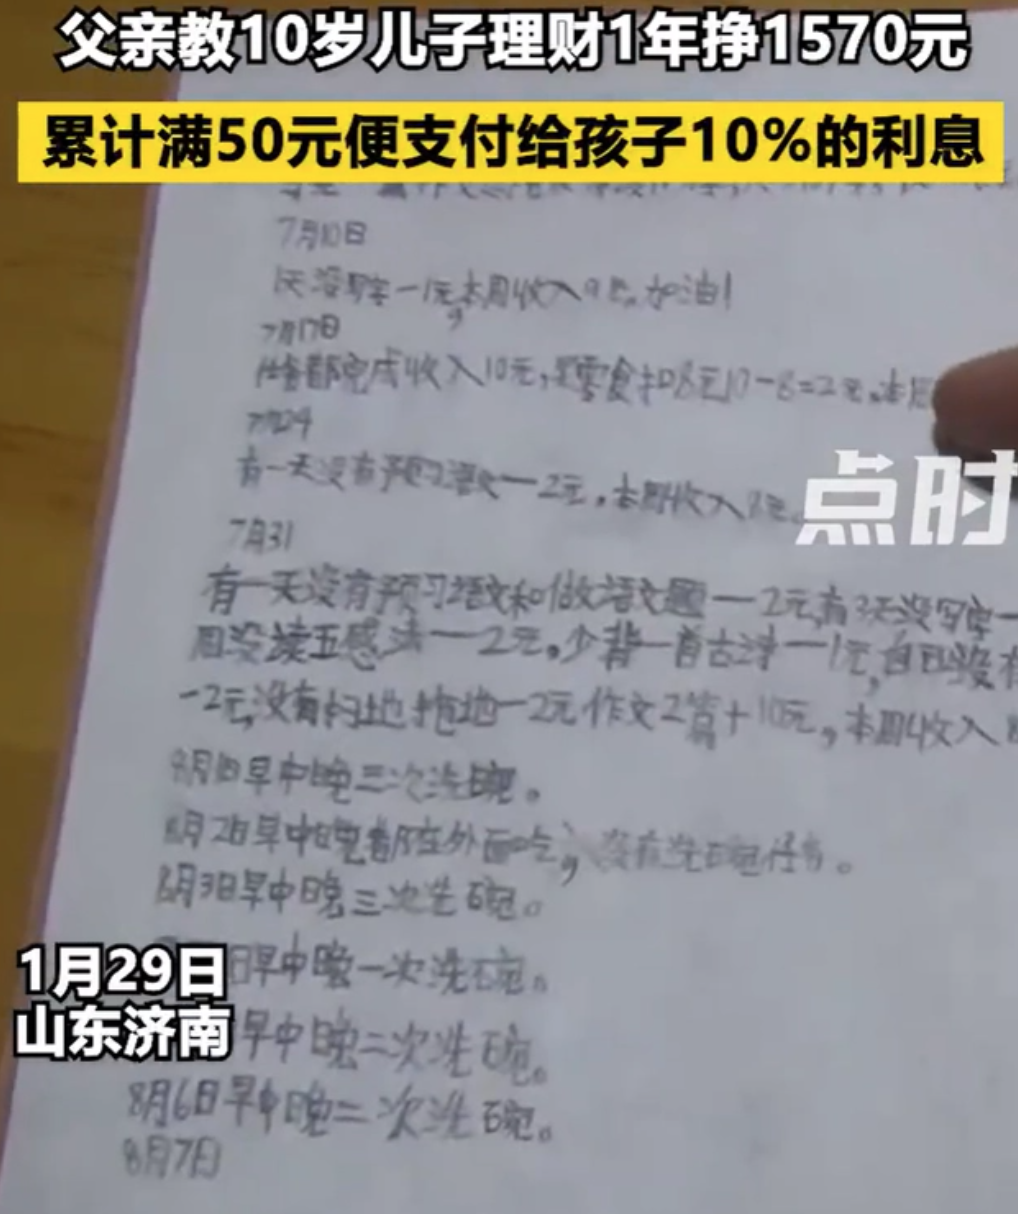 父亲教10岁儿子理财1年挣1570元
累计满50元便支付给孩子10%的利息
7月10日
1天没写字一1元,本周收入9元。加油!
7月17日
都完成收入10元,零食扣8元10-8=2元。本周
7月24
有一天没有预习语文一2元。本周收入8元。
点时
7月31
有一天没有预习语文和做语文题一2元,有3天没写字一
周没读五感法一2元。少背一首古诗一1元,
-2元,没有扫地拖地一2元作文2篇+10元,本周收入8
8月1日早中晚三次洗碗。
8月2日早中晚都在外面吃,没有洗碗任务。
8月3日早中晚三次洗碗。
1月29日
日早中晚一次洗碗。
山东济南
早中晚二次洗碗。
8月6日早中晚二次洗碗。
8月7日